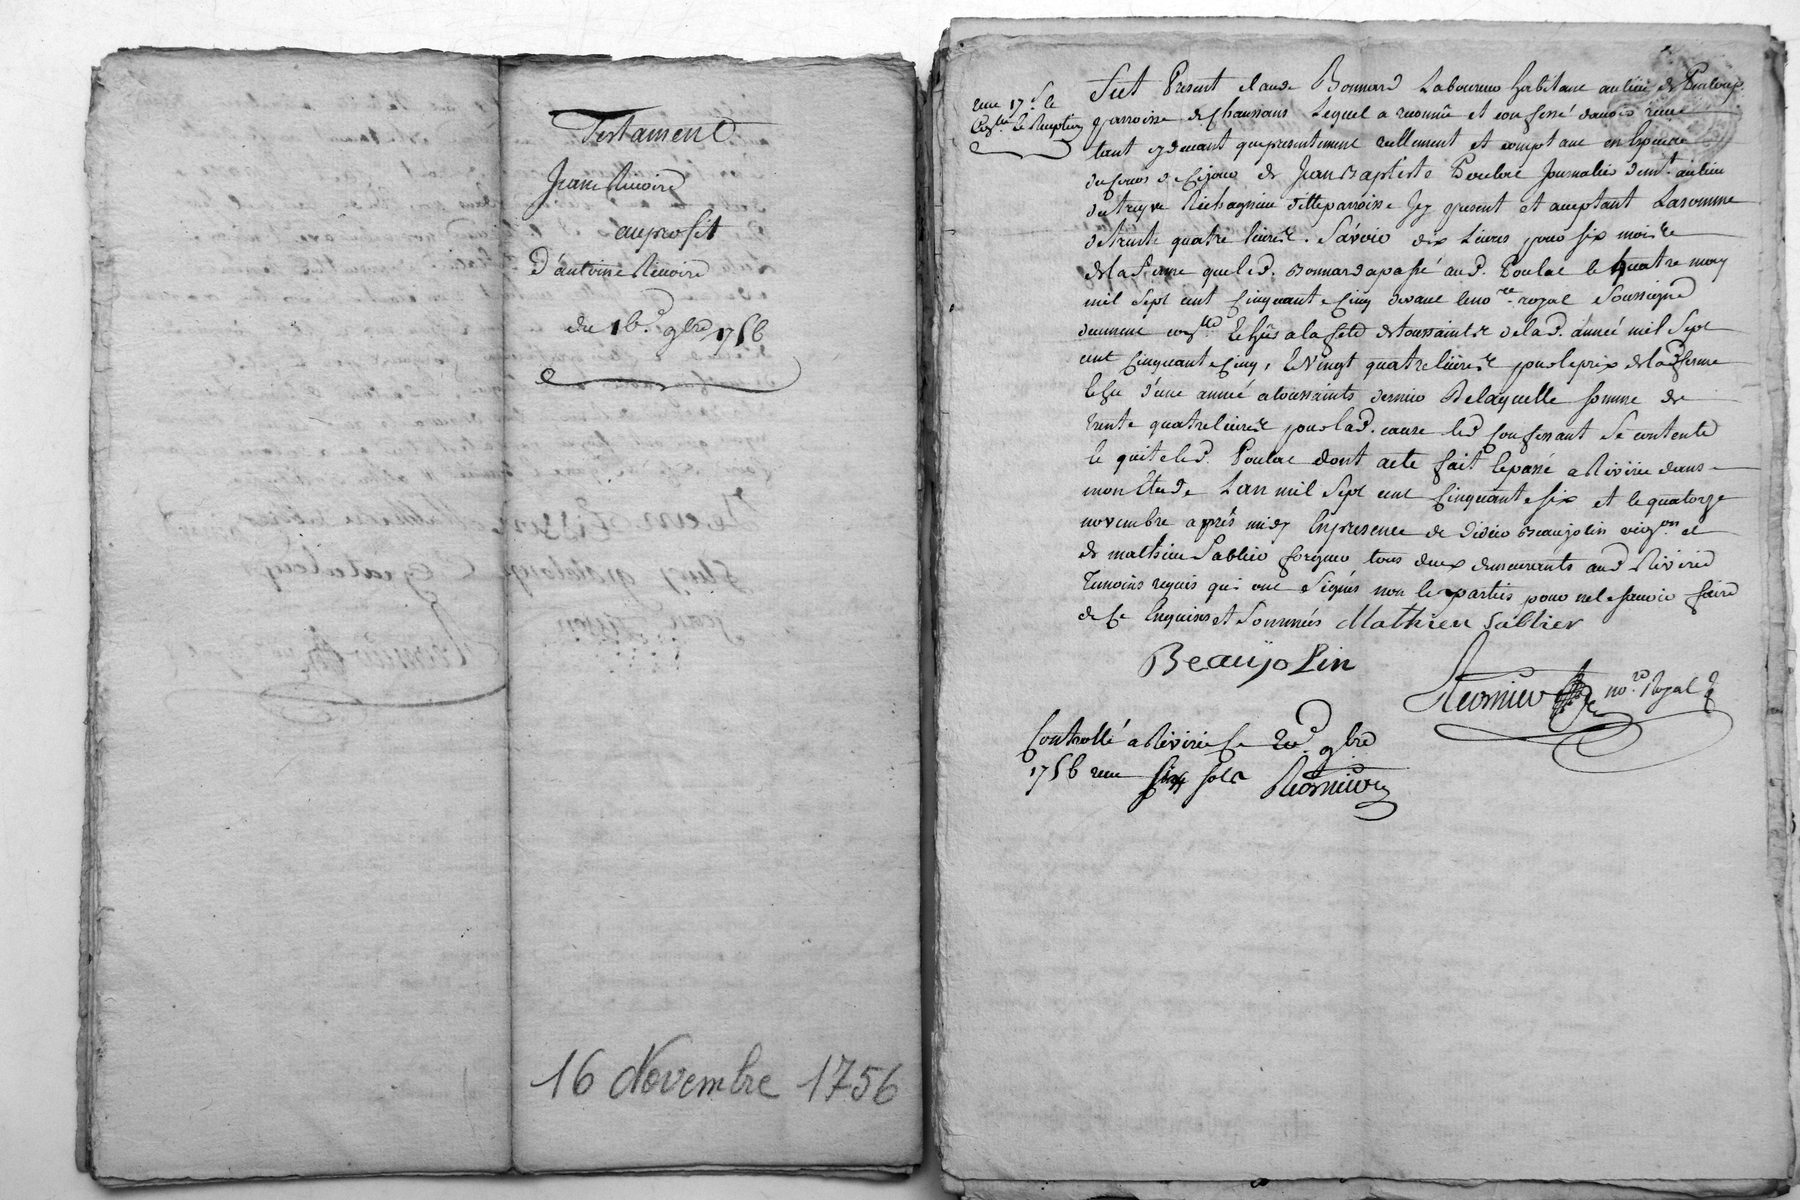 Testament
Jeane Ricoire
au profit
d'antoine Ricoire
du 16.e 9bre 1756
16 Novembre 1756
Fut Present claude Bonnard Laboureur habitant au lieu de
parroisse de chaussans Lequel a reconnû et confessé d'avoir reçeu
tant cy devant que presentement réellement et comptant en Especes
du cours de ce jour de Jean Baptiste Poulat Journalier demt. au lieu
de Richagnieu ditte parroisse Icy present et acceptant La somme
de trente quatre livres. Savoir dix Livres pour six mois
de la ferme que led. Bonnard a passé aud. Poulat le quatre may
mil sept cent Cinquante Cinq devant le no.re royal Soussigné
deument à la fete de toussaints de lad. année mil sept
cent Cinquante Cinq, Et Vingt quatre livres pour le prix de lad. ferme
d'une année a toussaints dernier De laquelle somme de
trente quatre livres pour lad. cause led. Confessant Se contente
Et quite led. Poulat dont acte fait Et passé a Riverie dans
mon Etude L'an mil sept cent Cinquante six et le quatorze
novembre après midy En presence de Didier Beaujolin et
de mathieu Sablier tous deux demeurants aud. Riverie
Temoins requis qui ont Signés non les parties pour ne le savoir faire
de ce Enquises et Sommées Mathieu Sablier
Beaujolin
no.re Royal
Controllé a Riverie Ce 9bre
1756 reçu six sols